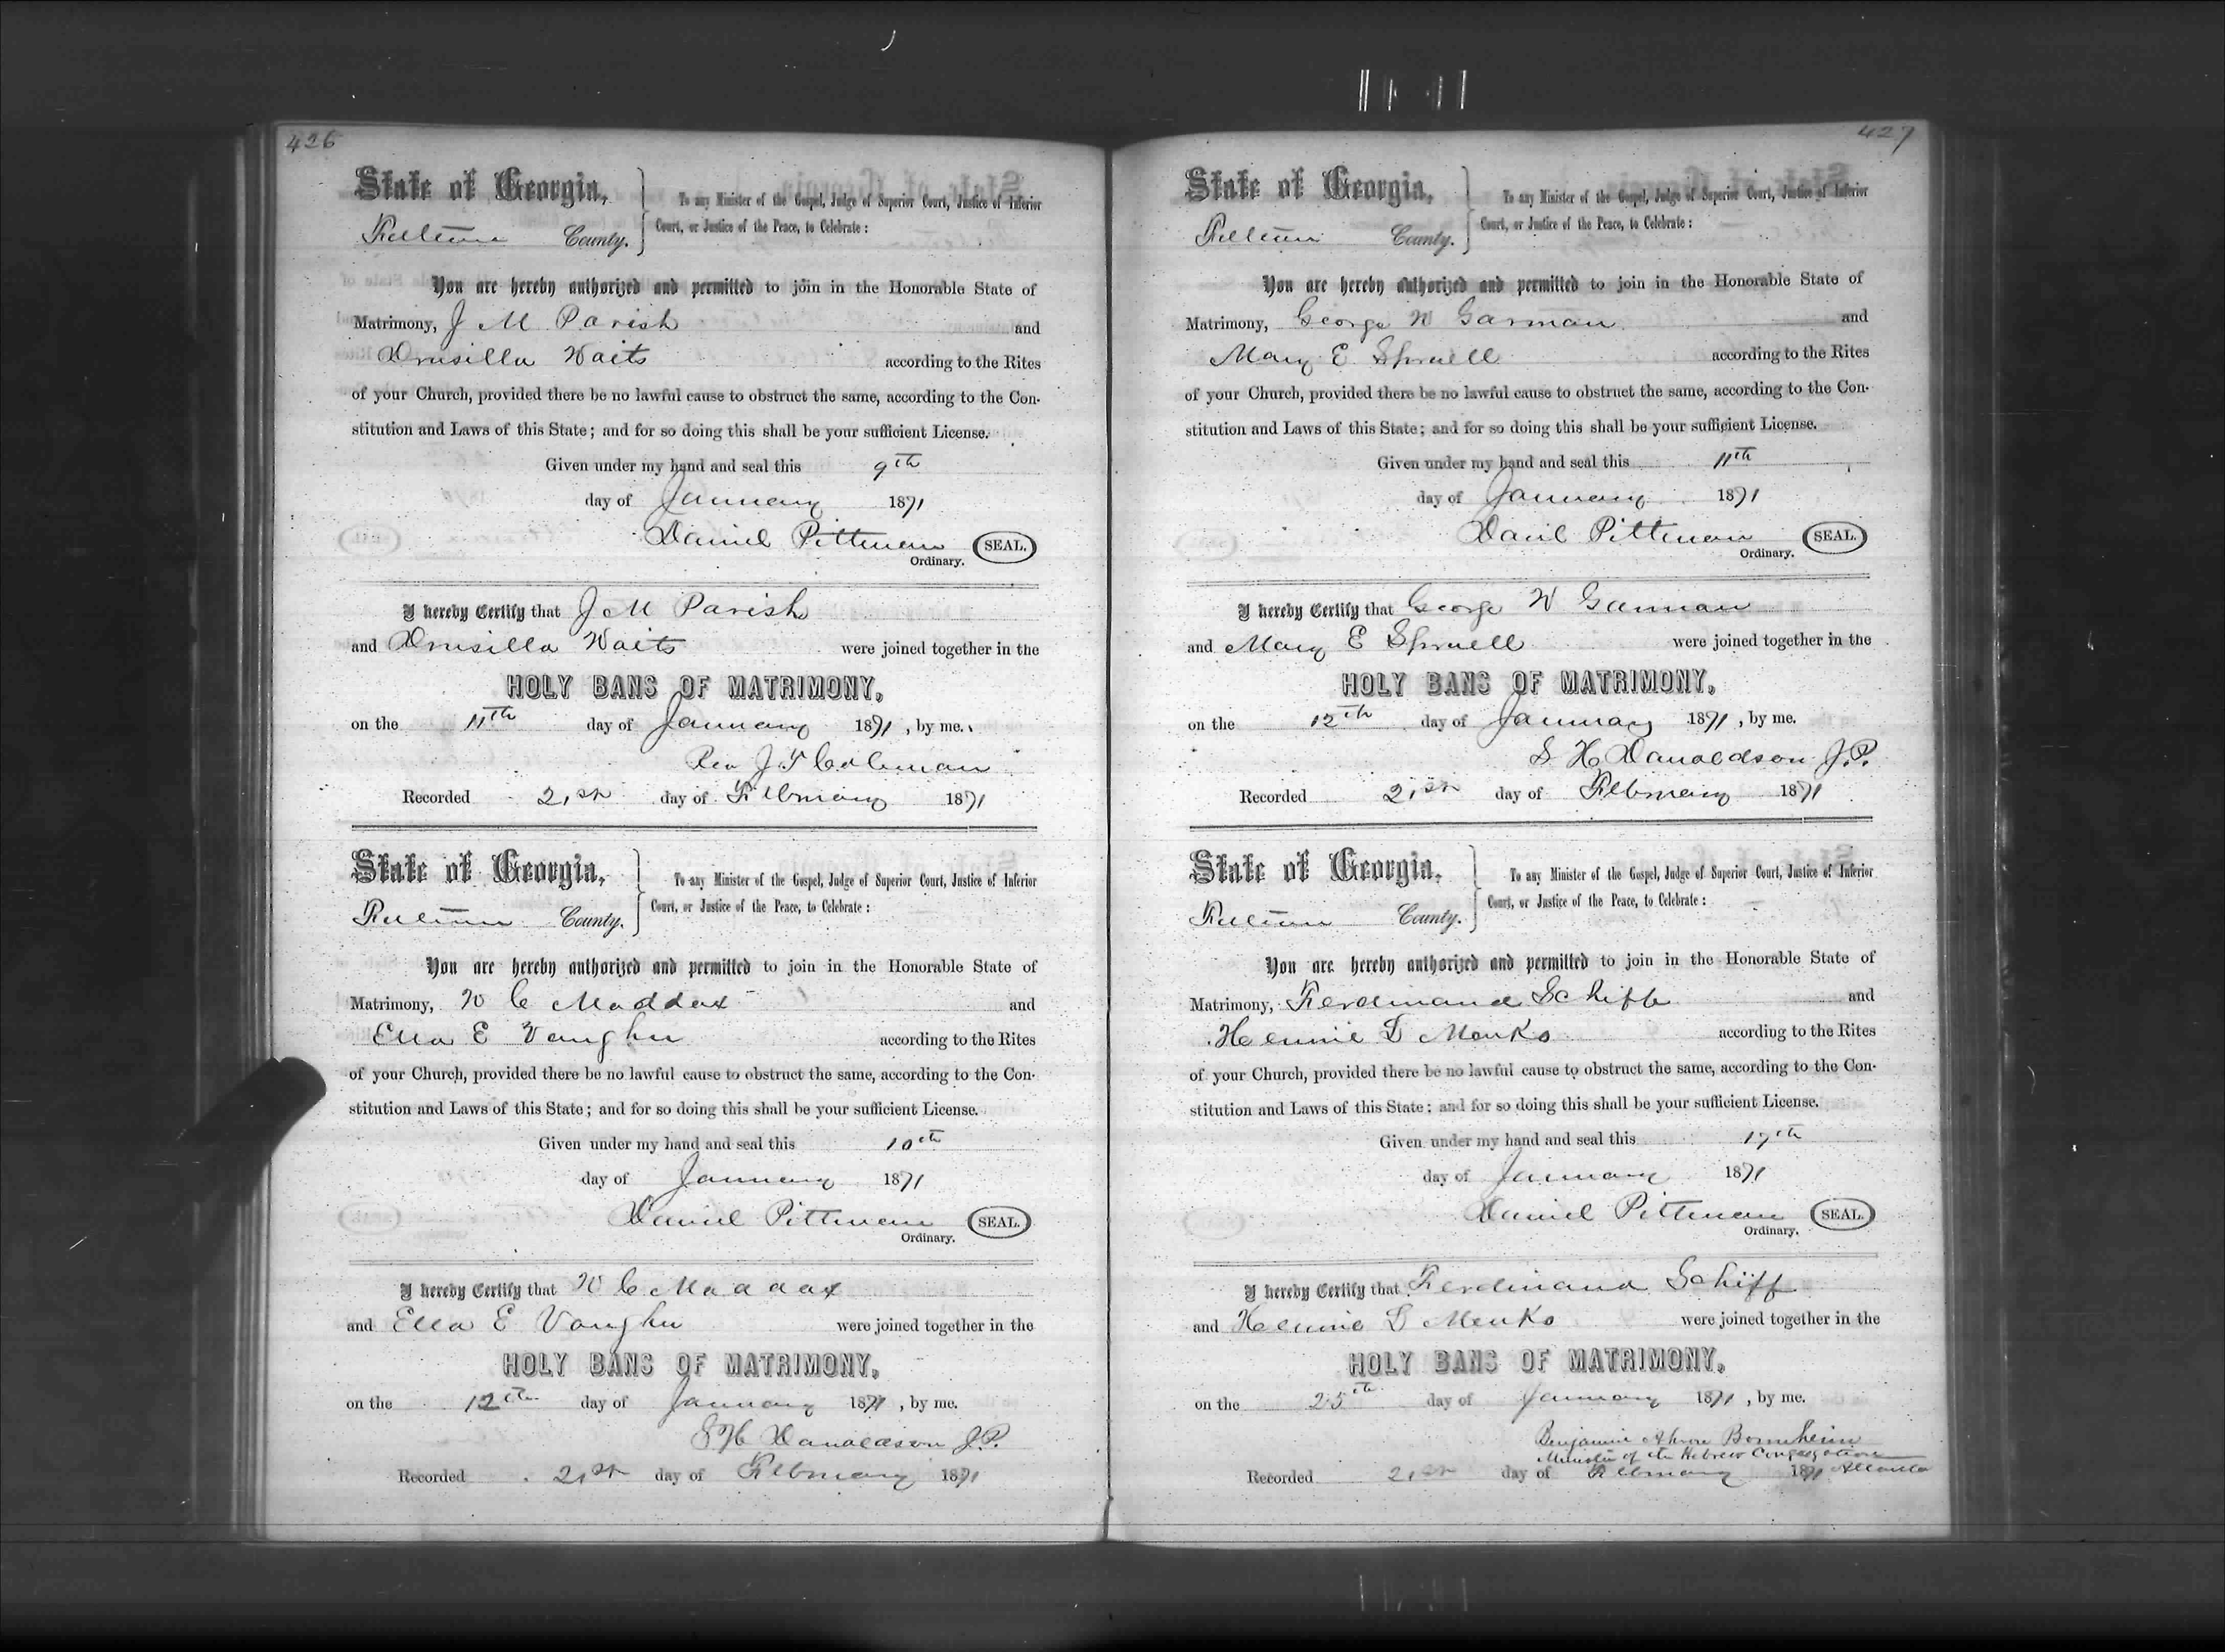 426
State of Georgia,
Fulton County.
To any Minister of the Gospel, Judge of Superior Court, Justice of Inferior
Court, or Justice of the Peace, to Celebrate :
You are hereby authorized and permitted to join in the Honorable State of
Matrimony, J M Parish and
Drusilla Waits according to the Rites
of your Church, provided there be no lawful cause to obstruct the same, according to the Con-
stitution and Laws of this State; and for so doing this shall be your sufficient License.
Given under my hand and seal this 9th
day of January 1871
Daniel Pittman SEAL.
Ordinary.
I hereby Certify that J M Parish
and Drusilla Waits were joined together in the
HOLY BANS OF MATRIMONY,
on the 11th day of January 1871, by me.
Rev J T Coleman
Recorded 21st day of February 1871
State of Georgia,
Fulton County.
To any Minister of the Gospel, Judge of Superior Court, Justice of Inferior
Court, or Justice of the Peace, to Celebrate :
You are hereby authorized and permitted to join in the Honorable State of
Matrimony, W C Maddox and
Ella E Vaughn according to the Rites
of your Church, provided there be no lawful cause to obstruct the same, according to the Con-
stitution and Laws of this State; and for so doing this shall be your sufficient License.
Given under my hand and seal this 10th
day of January 1871
Daniel Pittman SEAL.
Ordinary.
I hereby Certify that W C Maddox
and Ella E Vaughn were joined together in the
HOLY BANS OF MATRIMONY,
on the 12th day of January 1871, by me.
S H Danaldson J.P.
Recorded 21st day of February 1871
427
State of Georgia,
Fulton County.
To any Minister of the Gospel, Judge of Superior Court, Justice of Inferior
Court, or Justice of the Peace, to Celebrate :
You are hereby authorized and permitted to join in the Honorable State of
Matrimony, George W Garman and
Mary E Spruell according to the Rites
of your Church, provided there be no lawful cause to obstruct the same, according to the Con-
stitution and Laws of this State; and for so doing this shall be your sufficient License.
Given under my hand and seal this 11th
day of January 1871
Danil Pittman SEAL.
Ordinary.
I hereby Certify that George W Garman
and Mary E Spruell were joined together in the
HOLY BANS OF MATRIMONY,
on the 12th day of January 1871, by me.
S H Danaldson J.P.
Recorded 21st day of February 1871
State of Georgia,
Fulton County.
To any Minister of the Gospel, Judge of Superior Court, Justice of Inferior
Court, or Justice of the Peace, to Celebrate :
You are hereby authorized and permitted to join in the Honorable State of
Matrimony, Ferdinand Schiff and
Hennie D Menko according to the Rites
of your Church, provided there be no lawful cause to obstruct the same, according to the Con-
stitution and Laws of this State; and for so doing this shall be your sufficient License.
Given under my hand and seal this 17th
day of January 1871
Daniel Pittman SEAL.
Ordinary.
I hereby Certify that Ferdinand Schiff
and Hennie D Menko were joined together in the
HOLY BANS OF MATRIMONY,
on the 25th day of January 1871, by me.
Benjamin Ahron Bonnheim
Minister of the Hebrew Congregation
Recorded 21st day of February 1871 Atlanta